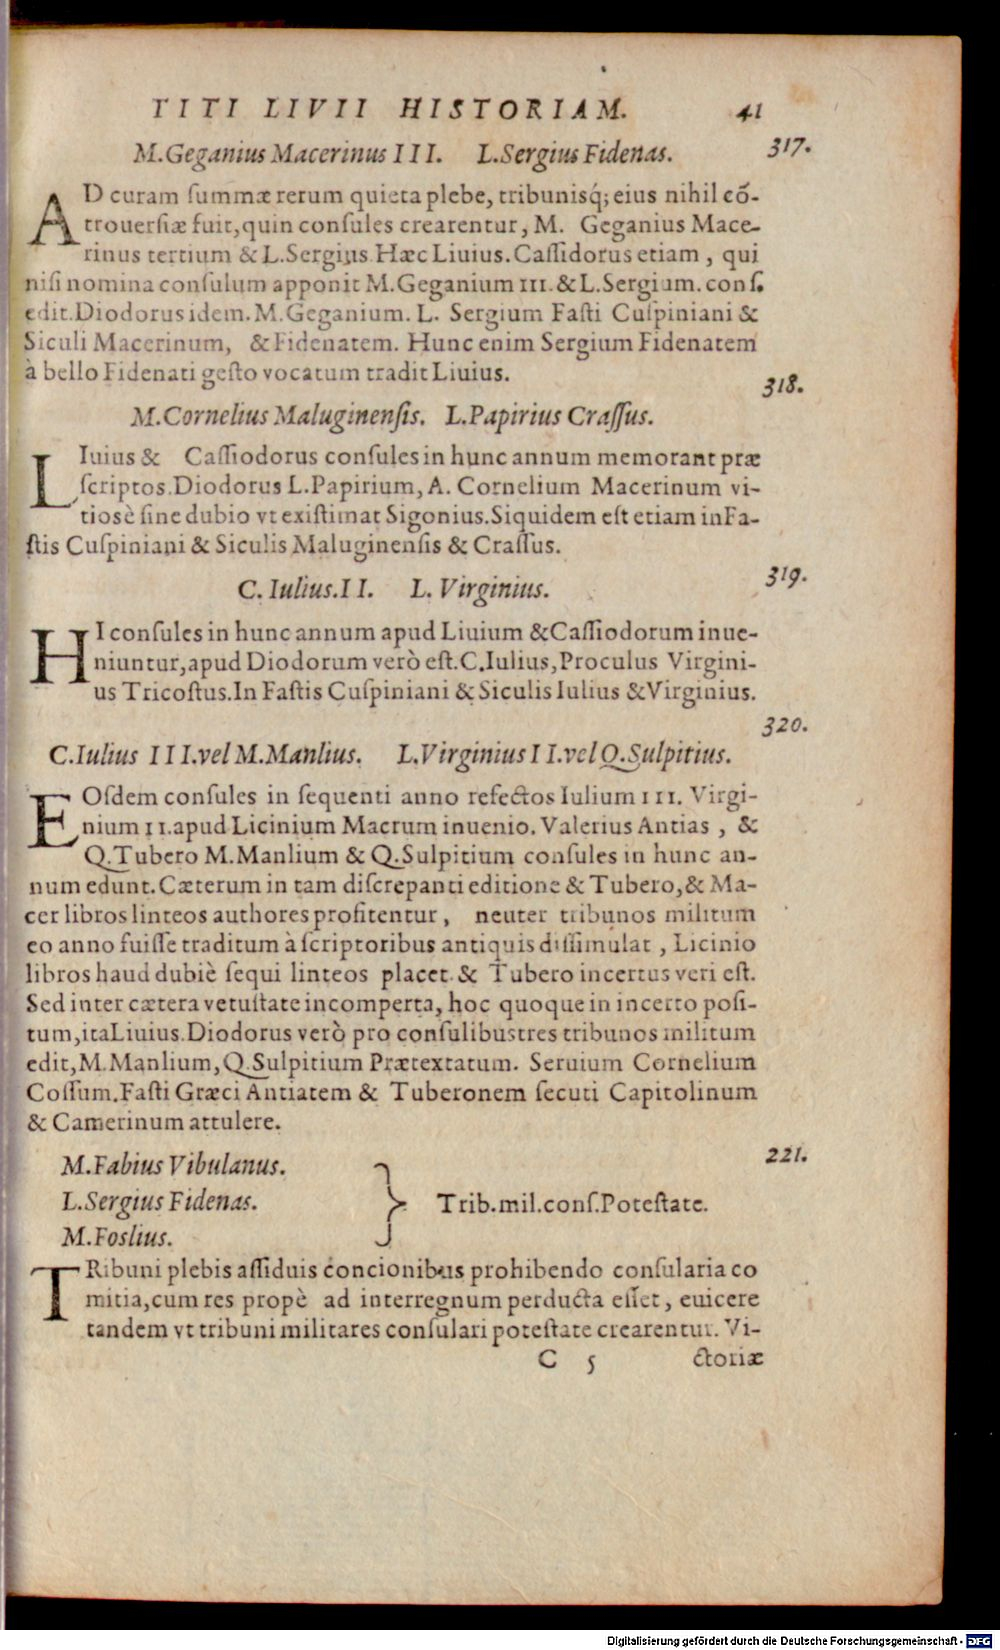 TITI LIVII HISTORIAM. 41
M.Geganius Macerinus III. L.Sergius Fidenas. 317.
AD curam ſummæ rerum quieta plebe, tribunisq́; eius nihil cō-
trouerſiæ fuit,quin conſules crearentur, M. Geganius Mace-
rinus tertium & L.Sergius.Hæc Liuius.Caſſidorus etiam , qui
niſi nomina conſulum apponit M.Geganium III.& L.Sergium.conſ.
edit.Diodorus idem.M.Geganium. L. Sergium Faſti Cuſpiniani &
Siculi Macerinum, & Fidenatem. Hunc enim Sergium Fidenatem
à bello Fidenati geſto vocatum tradit Liuius.
318.
M.Cornelius Maluginenſis. L.Papirius Craſſus.
LIuius & Caſſiodorus conſules in hunc annum memorant præ
ſcriptos.Diodorus L.Papirium, A. Cornelium Macerinum vi-
tiosè ſine dubio vt exiſtimat Sigonius.Siquidem eſt etiam in Fa-
ſtis Cuſpiniani & Siculis Maluginenſis & Craſſus.
C. Iulius.II. L. Virginius. 319.
HI conſules in hunc annum apud Liuium &Caſſiodorum inue-
niuntur,apud Diodorum verò eſt.C.Iulius,Proculus Virgini-
us Tricoſtus.In Faſtis Cuſpiniani & Siculis Iulius &Virginius.
320.
C.Iulius III.vel M.Manlius. L.Virginius II.vel Q.Sulpitius.
EOſdem conſules in ſequenti anno refectos Iulium III. Virgi-
nium II.apud Licinium Macrum inuenio. Valerius Antias , &
Q.Tubero M.Manlium & Q.Sulpitium conſules in hunc an-
num edunt.Cæterum in tam diſcrepanti editione & Tubero,& Ma-
cer libros linteos authores profitentur , neuter tribunos militum
eo anno fuiſſe traditum à ſcriptoribus antiquis diſſimulat , Licinio
libros haud dubiè ſequi linteos placet.& Tubero incertus veri eſt.
Sed inter cætera vetuſtate incomperta, hoc quoque in incerto poſi-
tum,ita Liuius.Diodorus verò pro conſulibus tres tribunos militum
edit,M.Manlium,Q.Sulpitium Prætextatum. Seruium Cornelium
Coſſum.Faſti Græci Antiatem & Tuberonem ſecuti Capitolinum
& Camerinum attulere.
M.Fabius Vibulanus. 221.
L.Sergius Fidenas. } Trib.mil.conſ.Poteſtate.
M.Foslius.
TRibuni plebis aſſiduis concionibus prohibendo conſularia co
mitia,cum res propè ad interregnum perducta eſſet , euicere
tandem vt tribuni militares conſulari poteſtate crearentur. Vi-
C 5 ctoriæ
Digitalisierung gefördert durch die Deutsche Forschungsgemeinschaft - DFG